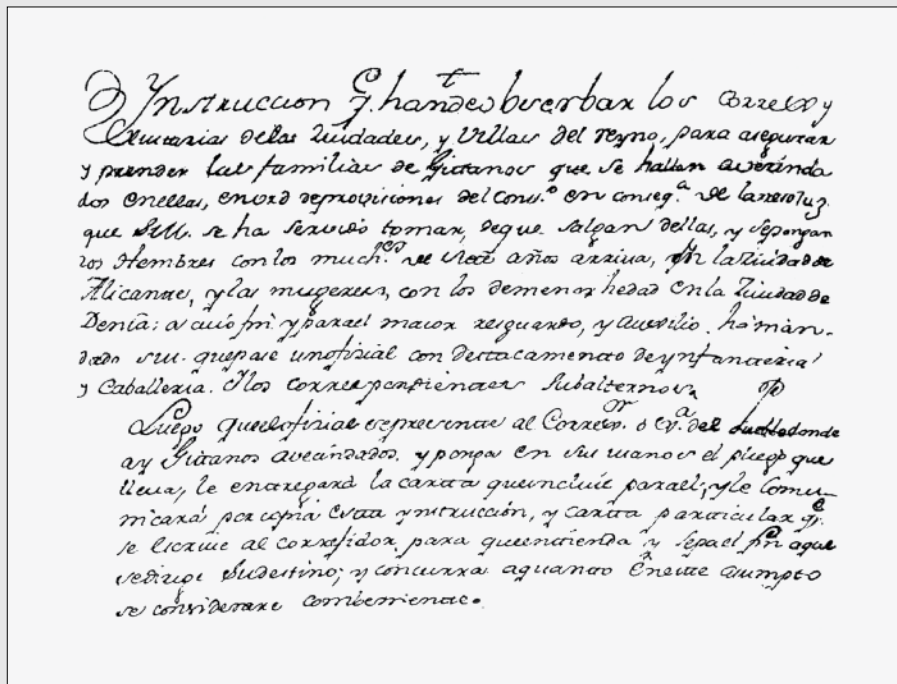 Ynstruccion q.e han de obserbar los Corres.es y
Justicias delas Ziudades, y Villas del reyno, para asegurar
y prender las familias de Gittanos que se hallan avezinda
dos enellas, en vrd de provisiones del Cons.o en conseq.a de la resoluz.
que S.M. se ha servido tomar, de que salgan dellas, y se pongan
los Hombres con los much.os de siete años arriva, en la Ziudad de
Alicante, y las mugeres, con los de menor hedad en la Ziudad de
Denia: a cuio fin y para el maior resguardo, y auxilio, há man-
dado S.M. que pase un ofizial con destacamento de ynfanteria
y Caballeria. Y los correspondientes subalternos
Luego que el ofizial se presente al Corre.or o del Pueblo donde
ay Gittanos avezindados, y ponga en sus manos el pliego que
lleva, le entregará la cartta que incluie para el; y le Comu-
nicará por copia Esta ynstrucción, y cartta particular q.e
se Escrive al corregidor para que entienda y sepa el fin a que
se dirige su destino; y concurra a quanto En este asumpto
se considerare combeniente.